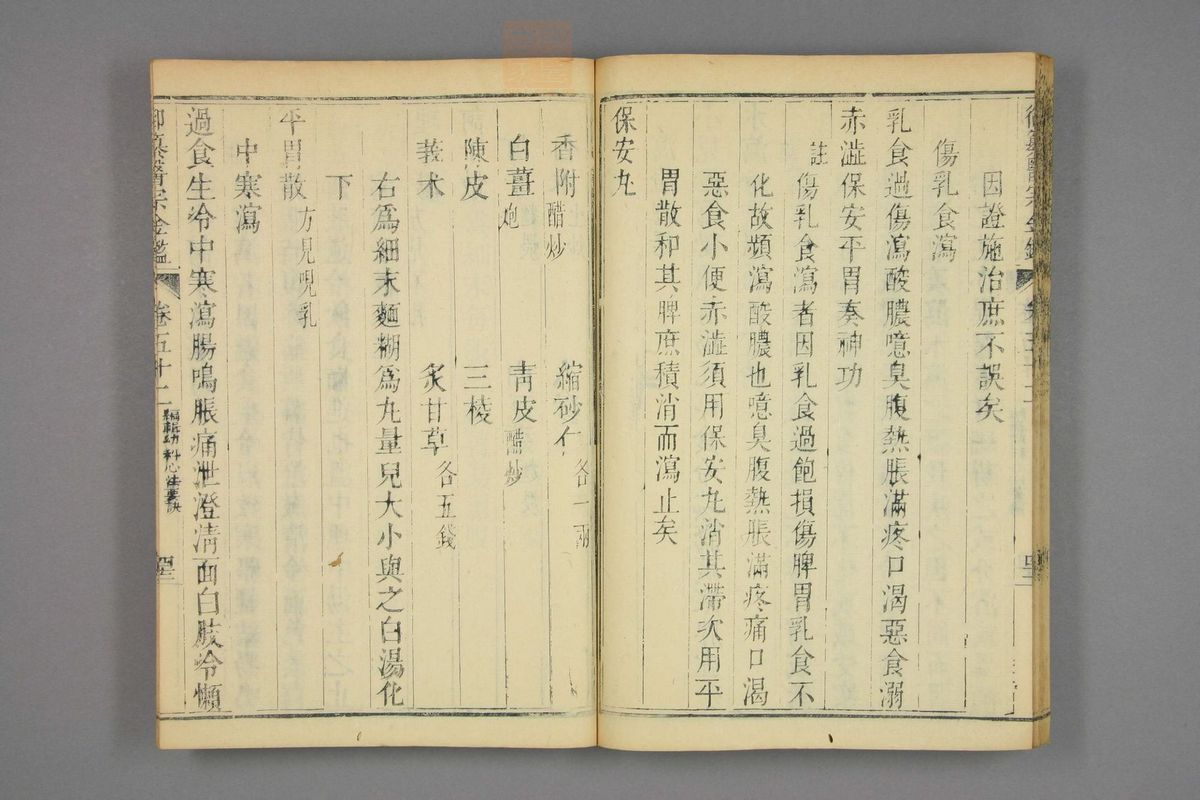 因證施治庶不誤矣
傷乳食瀉
乳食過傷瀉酸膿噫臭腹熱脹滿疼口渴惡食溺
赤澁保安平胃奏神功
註 傷乳食瀉者因乳食過飽損傷脾胃乳食不
化故頻瀉酸膿也噫臭腹熱脹滿疼痛口渴
惡食小便赤澁須用保安丸消其滯次用平
胃散和其脾庶積消而瀉止矣
保安丸
香附醋炒 縮砂仁各一兩
白薑炮 青皮醋炒
陳皮 三棱
莪术 炙甘草各五錢
右爲細末麵糊爲丸量兒大小與之白湯化
下
平胃散方見呪乳
中寒瀉
過食生冷中寒瀉腸鳴脹痛泄澄清面白肢冷懶
御纂醫宗金鑑 卷五十二 編輯幼科心法要訣